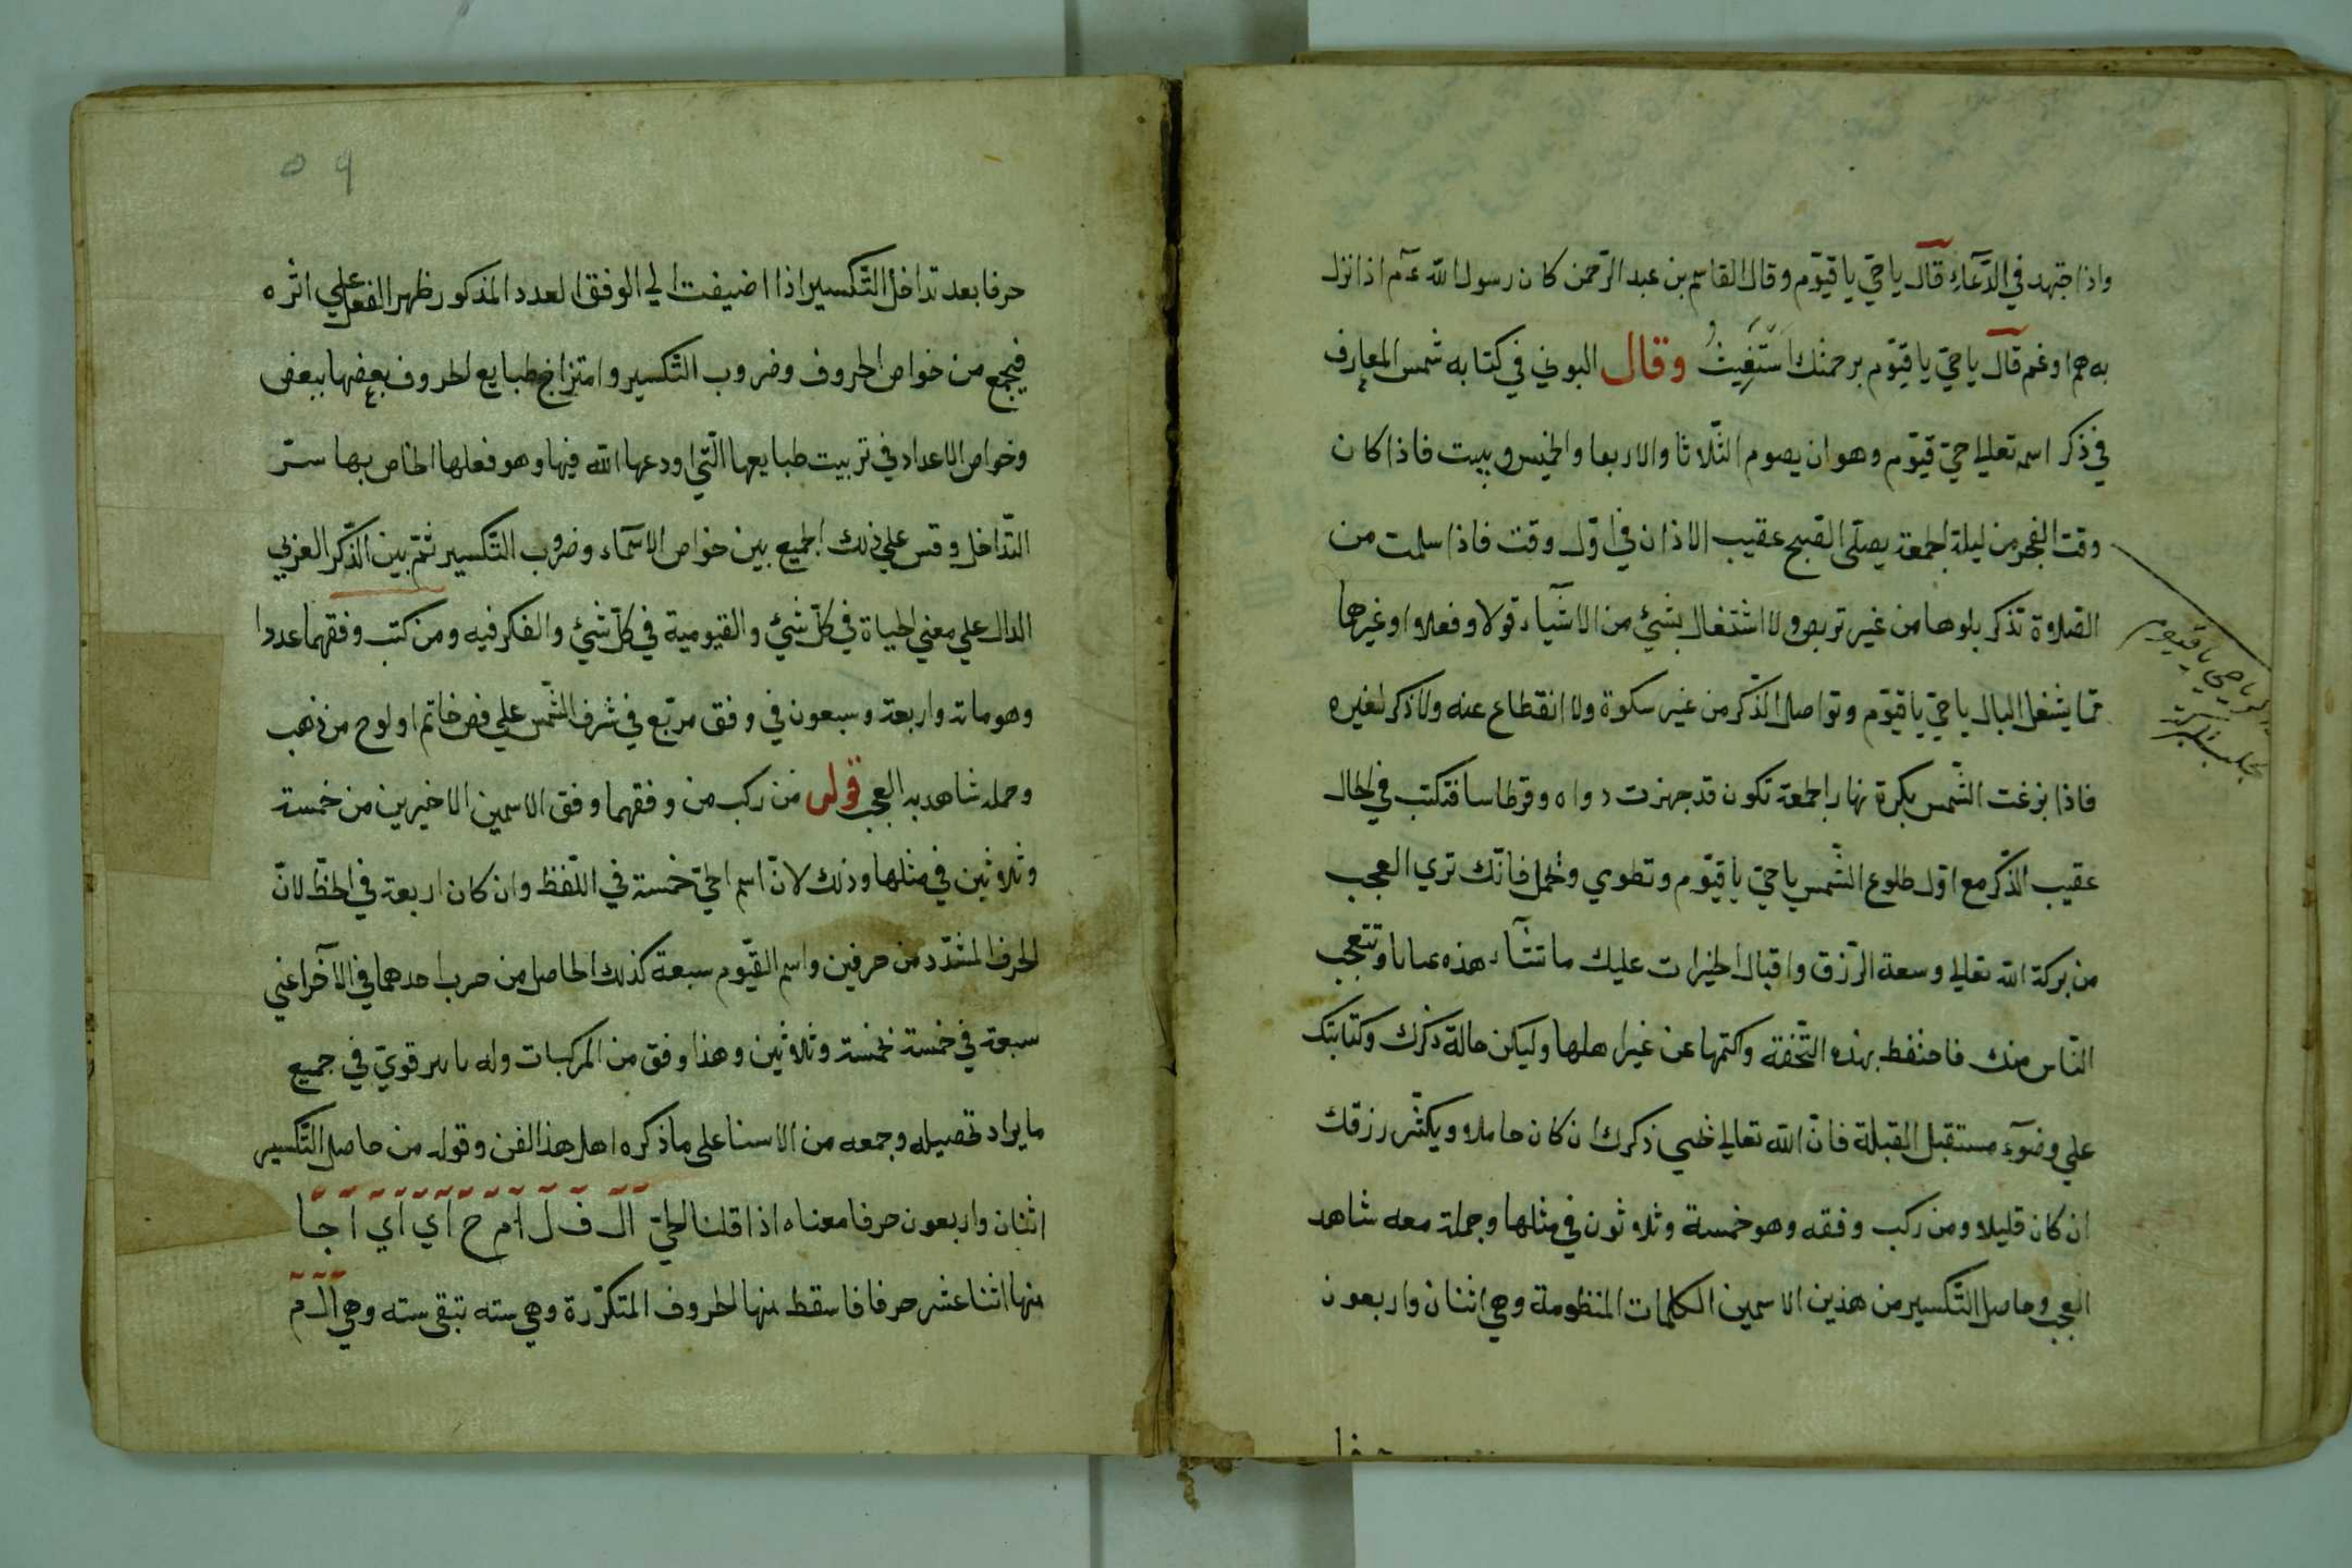 واذا اجتهد في الدّعآءِ قال يا حيّ يا قيّوم وقال القاسم بن عبد الرّحمن كان رسول الله عم اذا نزل
به هم او غم قال يا حيّ يا قيّوم برحمتك اَسْتَغِيثُ وقال البوني في كتابه شمس المعارف
في ذكر اسمه تعالي حيّ قيّوم وهو ان يصوم الثّلاثا والاربعا والخميس ويبيت فاذا كان
وقت الفجر من ليلة الجمعة يصلّي الصّبح عقيب الاذان في اوّل وقت فاذا سلمت من
الصّلاوة تذكر بلوها من غير تربص ولا اشتغال بشيئ من الاشيآء قولا وفعلا او غيرهما
ممّا يشغل البال يا حيّ يا قيّوم وتواصل الذّكر من غير سكوة ولا انقطاع عنه ولا ذكر لغيره
فاذا بزغت الشّمس بكرة نهار الجمعة تكون قد جهزت دواه وقرطاسا فتكتب في الحال
عقيب الذّكر مع اوّل طلوع الشّمس يا حيّ يا قيّوم وتطوي وتحمل فانّك تري العجب
من بركة الله تعالي وسعة الرّزق واقبال الخيرات عليك ما تشآء هذه عيانا وتتعجب
النّاس منك فاحتفظ بهذه التّحفة واكتمها عن غير اهلها وليكن حالة ذكرك وكتابتك
علي وضوٓء مستقبل القبلة فانّ الله تعالي يحيي ذكرك ان كان حاملا ويكثّر رزقك
ان كان قليلا ومن ركب وفقه وهو خمسة وثلاثون في مثلها وحمله معه شاهد
العجب وحاصل التّكسير من هذين الاسمين الكلمات المنظومة وهي اثنان واربعون
يا حي يا قيوم
٥٩
حرفا بعد تداخل التّكسير اذا اضيفت الي الوفق العدد المذكور ظهر الفعل علي اثره
فيجمع من خواص الحروف وضروب التّكسير وامتزاج طبايع الحروف بعضها ببعض
وخواص الاعداد في تربيت طبايعها الّتي اودعها الله فيها وهو فعلها الخاص بها سرّ
التّداخل وقس علي ذلك الجميع بين خواص الاسمآء وضروب التّكسير ثمّ بين الذّكر العزبي
الدال علي معني الحياة في كلّ شيئ والقيومية في كلّ شيئ والفكر فيه ومن كتب وفقهما عددا
وهو ماته واربعة وسبعون في وفق مربّع في شرف الشّمس علي فص خاتم او لوح من ذهب
وحمله شاهد به العجب قوله من ركب من وفقهما وفق الاسمين الاخيرين من خمسة
وثلاثين في مثلها وذلك لانّ اسم الحيّ خمسة في اللّفظ وان كان اربعة في الخظ لانّ
الحرف المشدّد من حرفين واسم القيّوم سبعة كذلك الحاصل من ضرب احدهما في الآخر اعني
سبعة في خمسة خمسة وثلاثين وهذا وفق من المركبات وله تاىىر قويّ في جميع
ما يراد تحصيله وجمعه من الاسنا على ما ذكره اهل هذا الفن وقوله من حاصل التّكسير
اثنان واربعون حرفا معناه اذا قلنا الحيّ ال ف ل ام ح اي اي ا جبا
منها اثنا عشر حرفا فاسقط منها الحروف المتكرّرة وهي سته تبقى سته وهي ال م